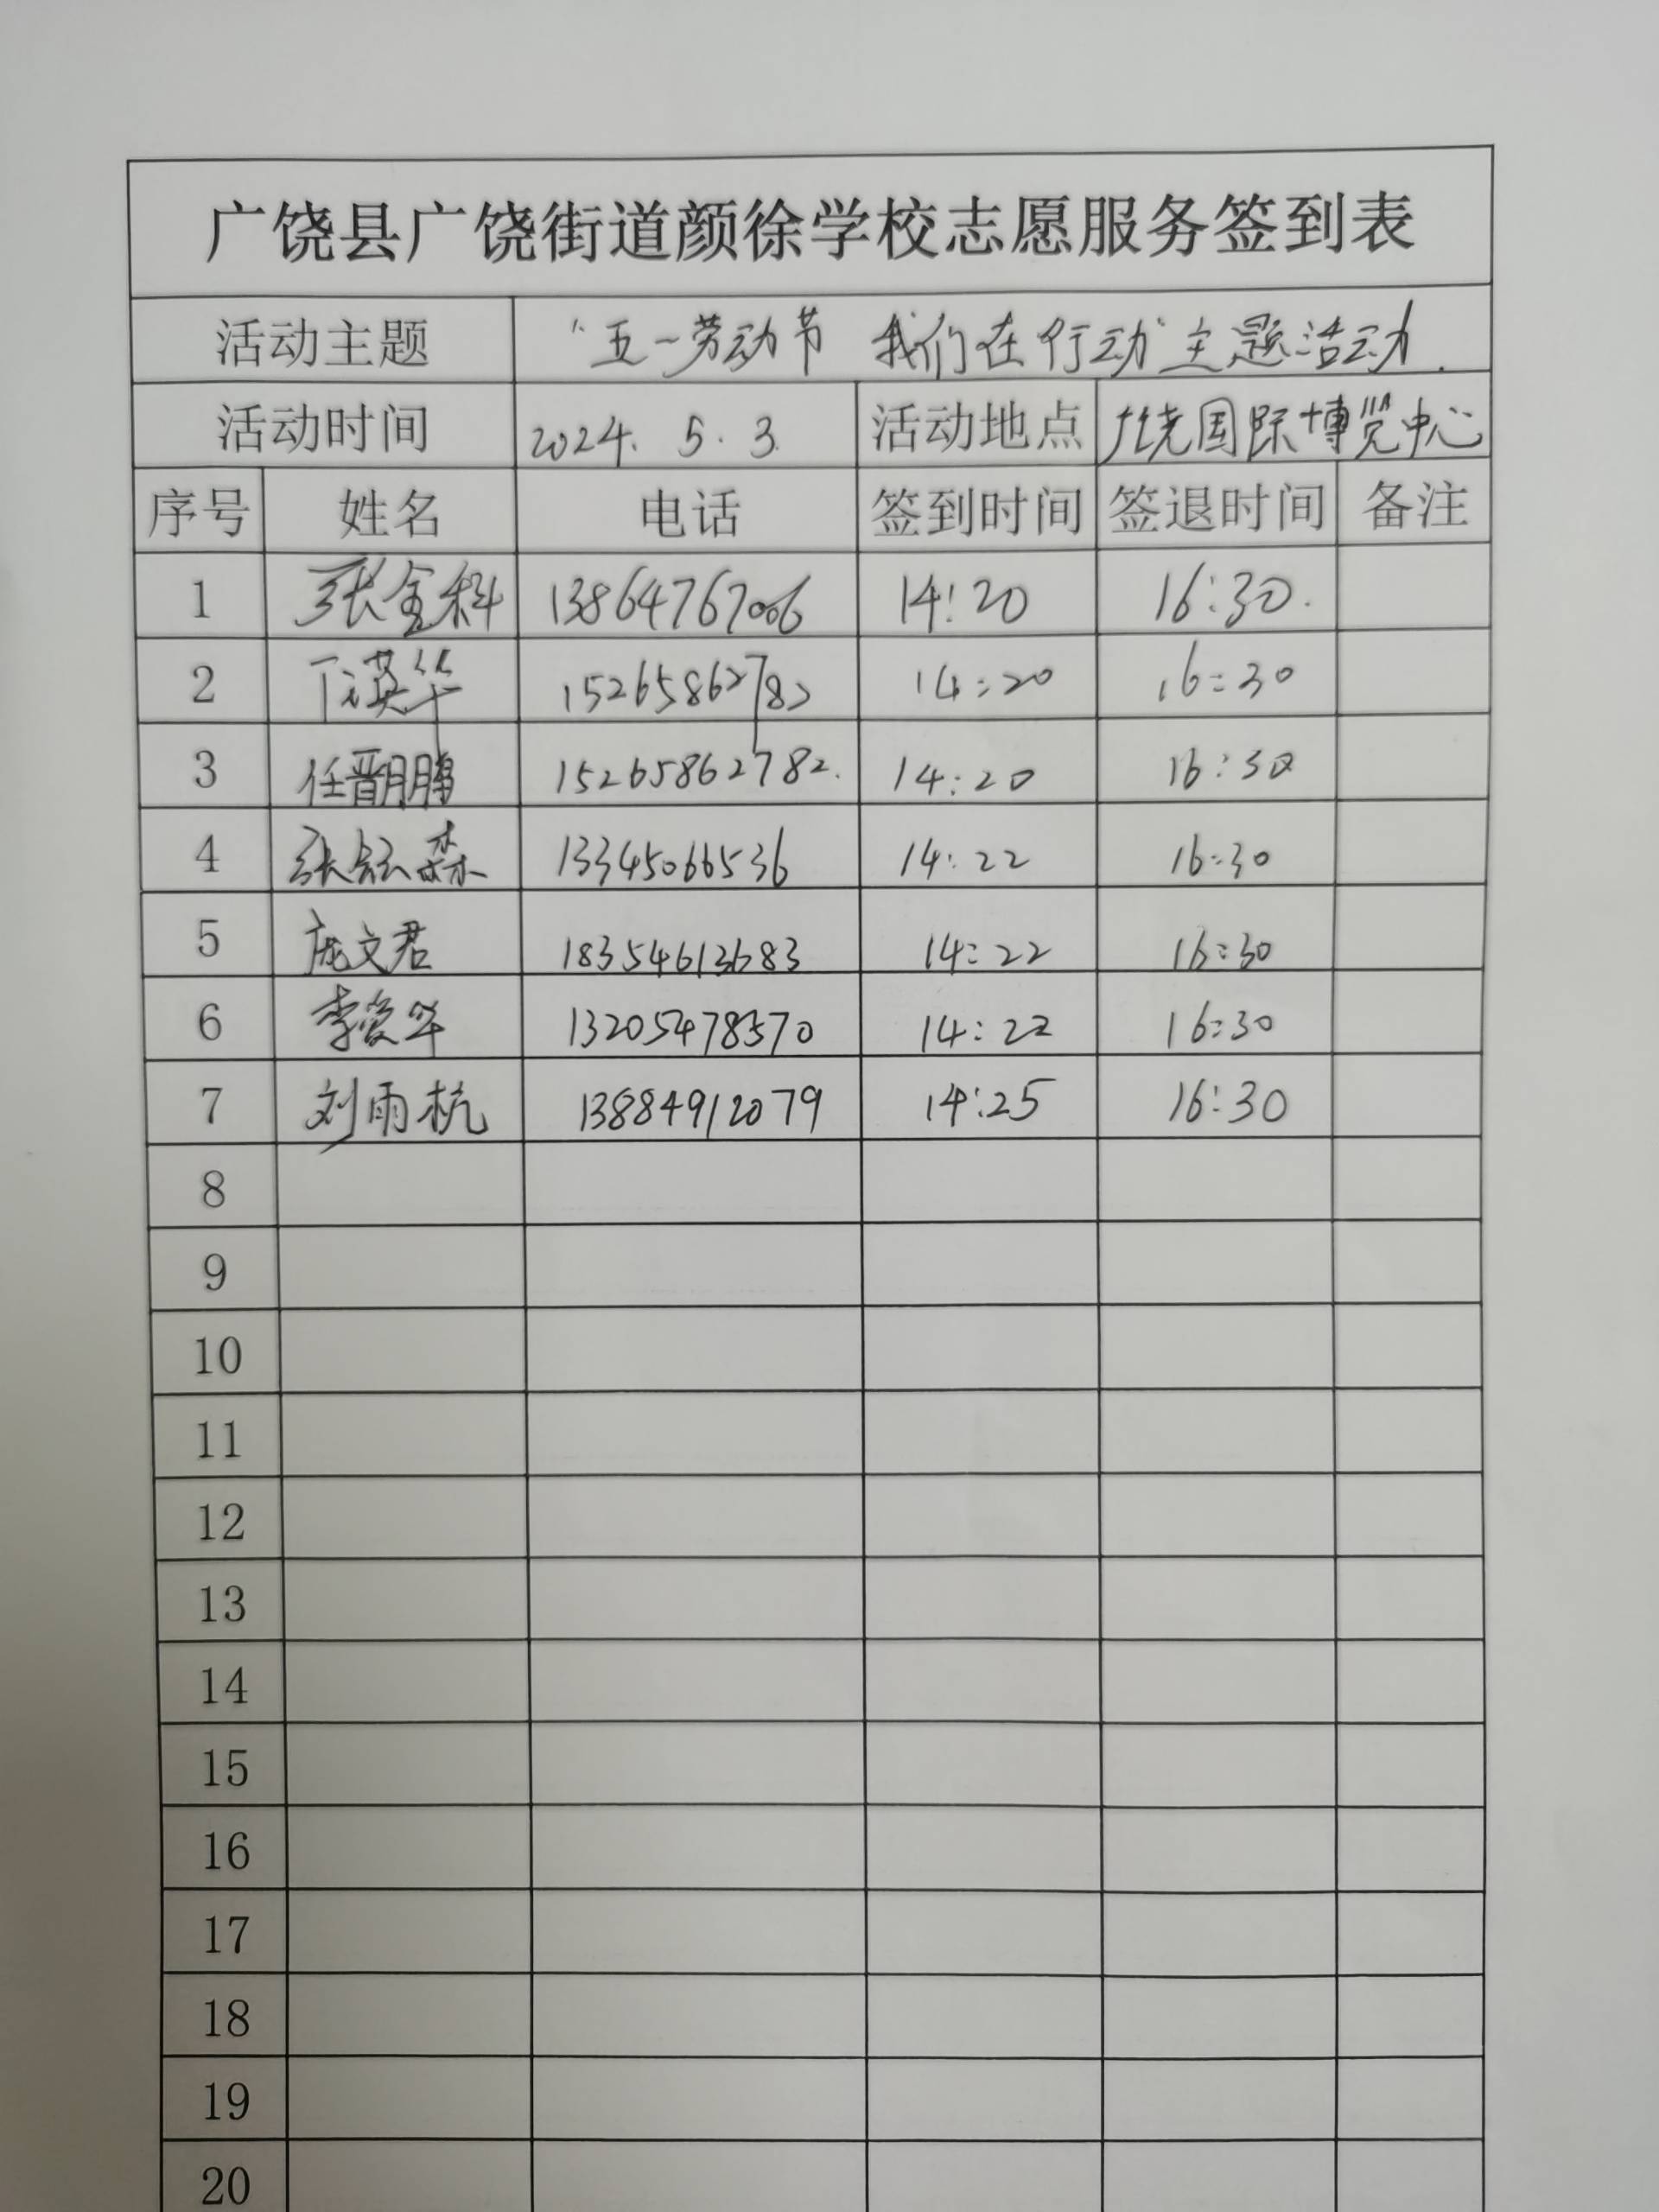 广饶县广饶街道颜徐学校志愿服务签到表
活动主题 “五一劳动节 我们在行动”主题活动.
活动时间 2024. 5. 3. 活动地点 广饶国际博览中心
序号 姓名 电话 签到时间 签退时间 备注
1 张金科 13864767006 14:20 16:30.
2 英华 14:20 16:30
3 任晋鹏 15265862782. 14:20 16:30
4 张 森 13345066536 14:22 16:30
5 庞文君 18354613683 14:22 16:30
6 李爱华 14:22 16:30
7 刘雨杭 13884912079 14:25 16:30
8
9
10
11
12
13
14
15
16
17
18
19
20